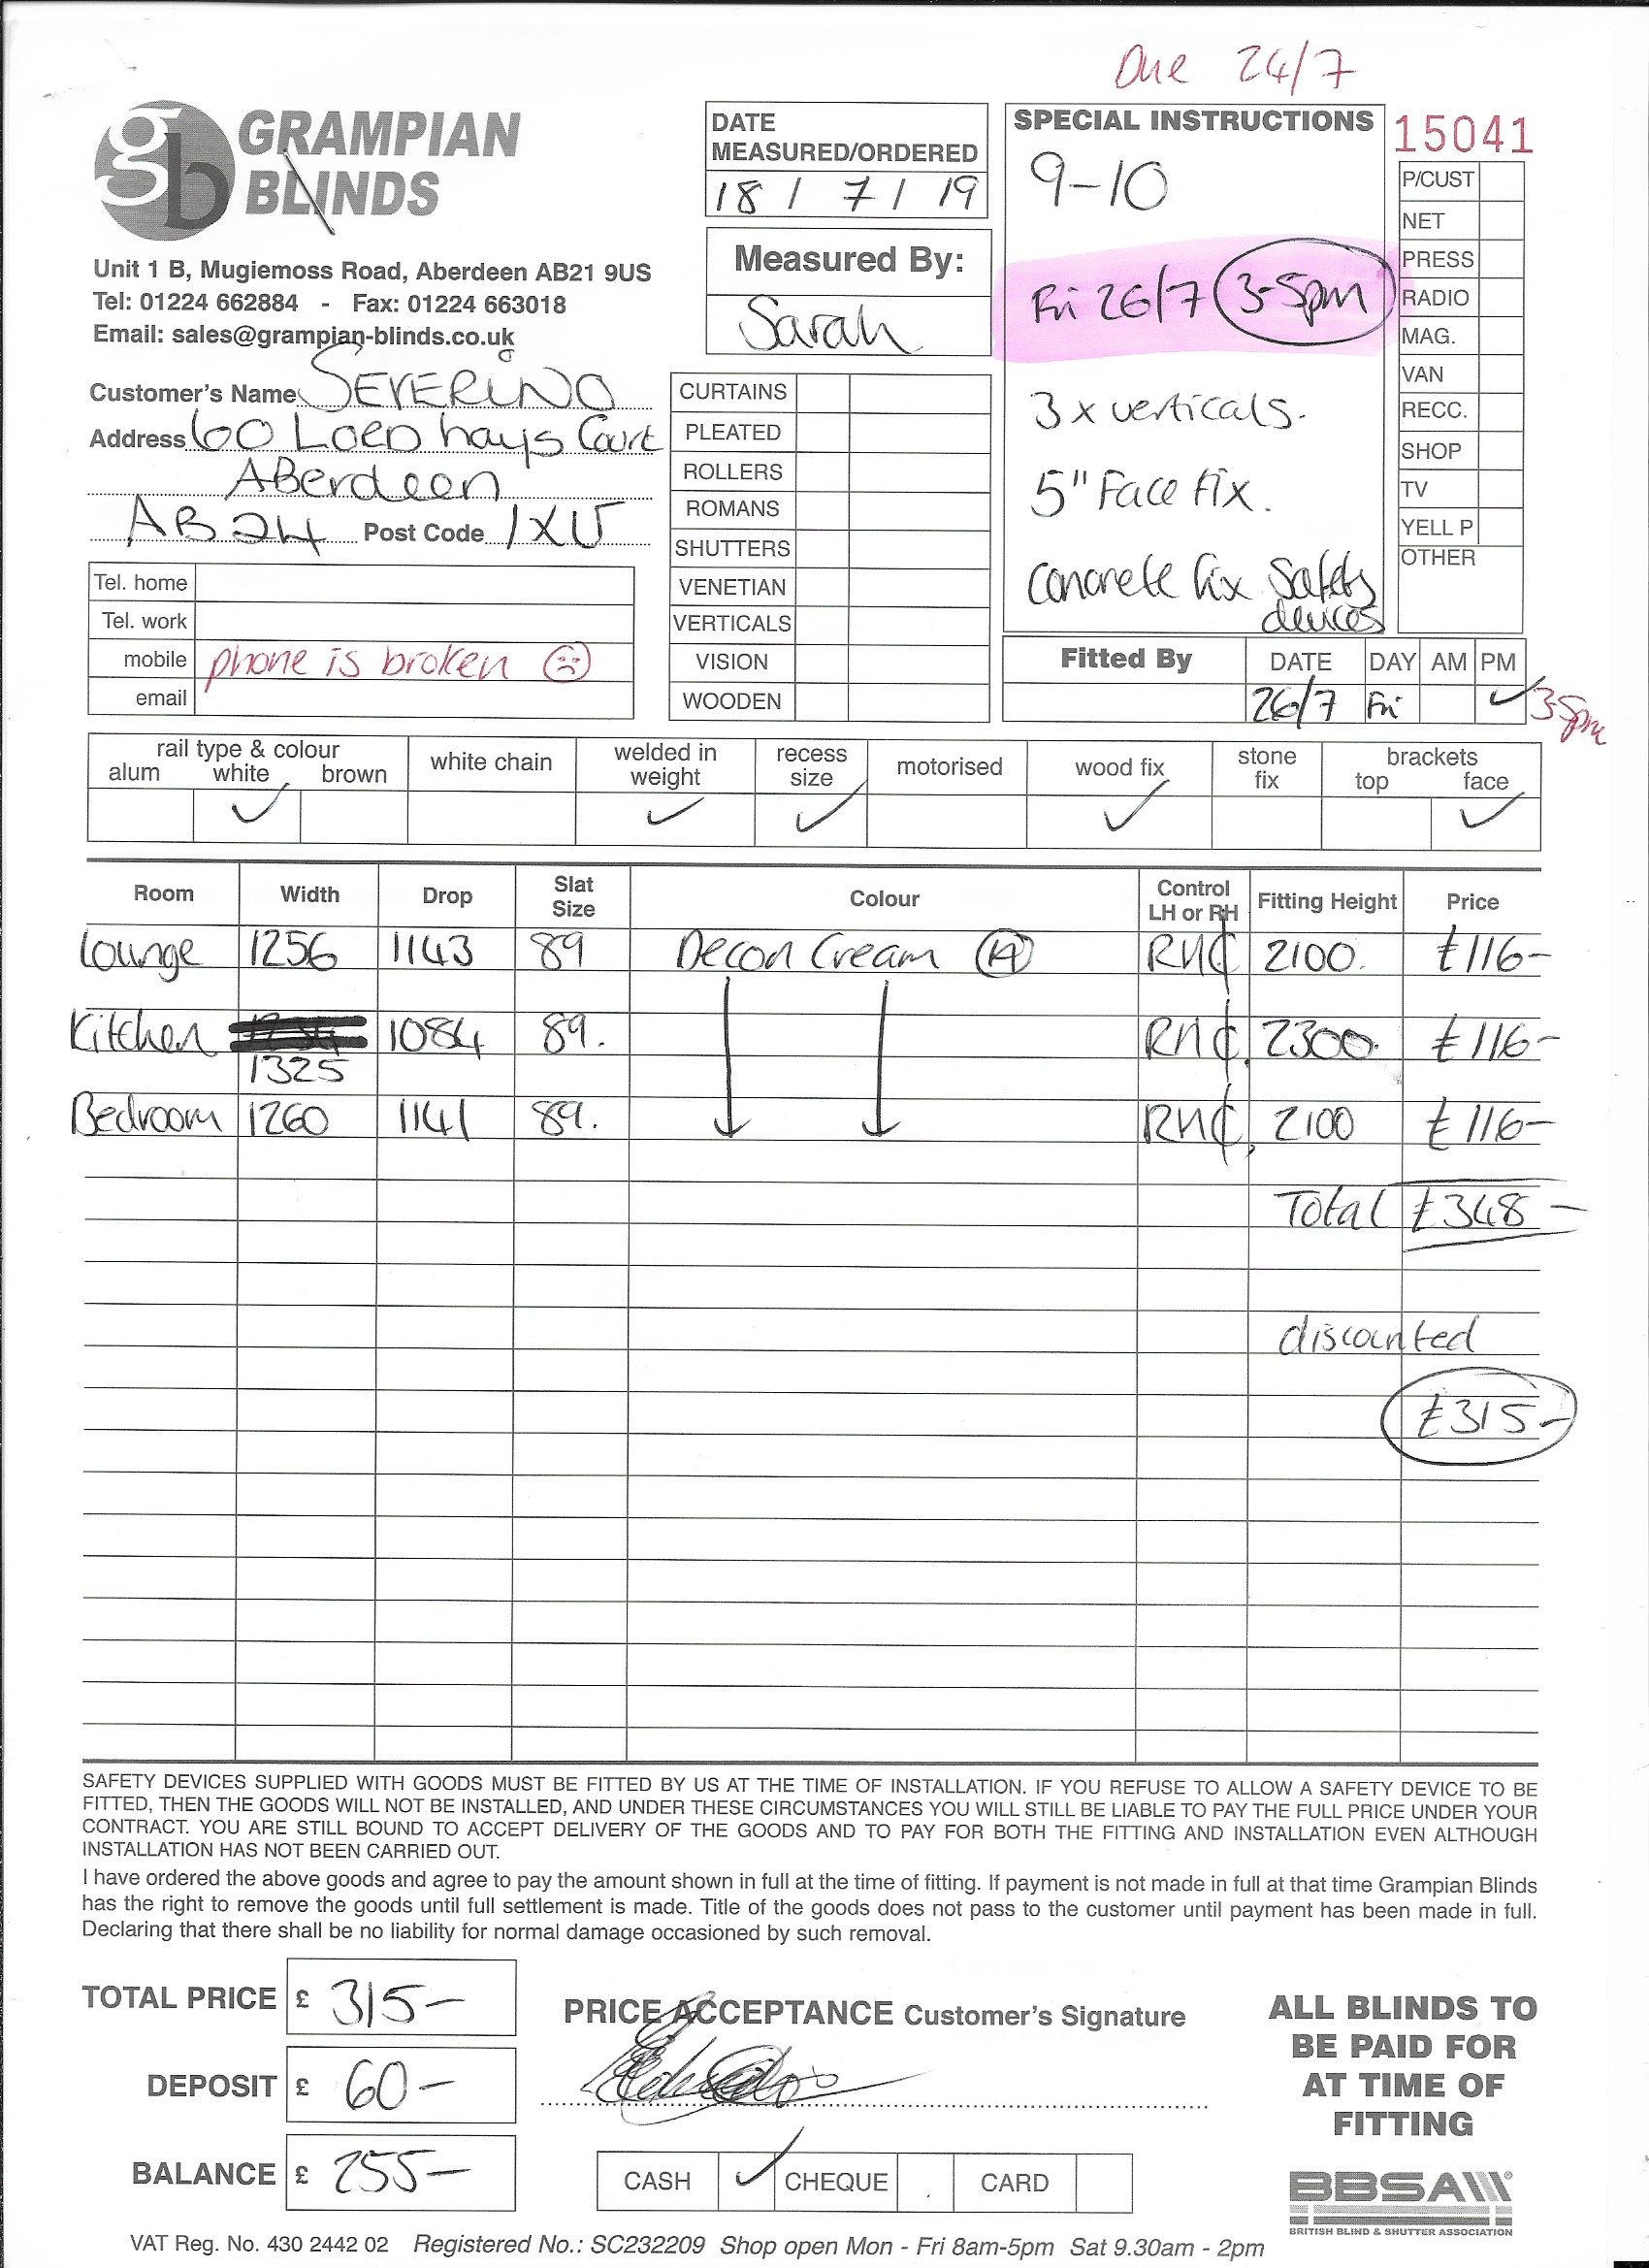 Due 24/7
GRAMPIAN
BLINDS
Unit 1 B, Mugiemoss Road, Aberdeen AB21 9US
Tel: 01224 662884 - Fax: 01224 663018
Email: sales@grampian-blinds.co.uk
DATE
MEASURED/ORDERED
18 / 7 / 19
Measured By:
Sarah
SPECIAL INSTRUCTIONS
9-10
Fri 26/7 3-5pm
3 x verticals.
5" Face fix.
concrete fix Safety
devices
15041
P/CUST
NET
PRESS
RADIO
MAG.
VAN
RECC.
SHOP
TV
YELL P
OTHER
Customer's Name SEVERINO
Address 60 Loedhays Court
ABerdeen
AB24 Post Code 1XU
Tel. home
Tel. work
mobile phone is broken
email
CURTAINS
PLEATED
ROLLERS
ROMANS
SHUTTERS
VENETIAN
VERTICALS
VISION
WOODEN
Fitted By DATE DAY AM PM
26/7 Fri ✓ 3-5pm
rail type & colour
alum white brown
white chain
welded in
weight
recess
size
motorised
wood fix
stone
fix
brackets
top face
✓ ✓ ✓ ✓ ✓
Room Width Drop Slat Size Colour Control LH or RH Fitting Height Price
Lounge 1256 1143 89 Decon Cream (A) RH₵ 2100. £116-
Kitchen 1325 1084 89. RH₵. 2300. £116-
Bedroom 1260 1141 89. RH₵. 2100 £116-
Total £348-
discounted
£315-
SAFETY DEVICES SUPPLIED WITH GOODS MUST BE FITTED BY US AT THE TIME OF INSTALLATION. IF YOU REFUSE TO ALLOW A SAFETY DEVICE TO BE
FITTED, THEN THE GOODS WILL NOT BE INSTALLED, AND UNDER THESE CIRCUMSTANCES YOU WILL STILL BE LIABLE TO PAY THE FULL PRICE UNDER YOUR
CONTRACT. YOU ARE STILL BOUND TO ACCEPT DELIVERY OF THE GOODS AND TO PAY FOR BOTH THE FITTING AND INSTALLATION EVEN ALTHOUGH
INSTALLATION HAS NOT BEEN CARRIED OUT.
I have ordered the above goods and agree to pay the amount shown in full at the time of fitting. If payment is not made in full at that time Grampian Blinds
has the right to remove the goods until full settlement is made. Title of the goods does not pass to the customer until payment has been made in full.
Declaring that there shall be no liability for normal damage occasioned by such removal.
TOTAL PRICE £ 315-
DEPOSIT £ 60-
BALANCE £ 255-
PRICE ACCEPTANCE Customer's Signature
CASH ✓ CHEQUE CARD
ALL BLINDS TO
BE PAID FOR
AT TIME OF
FITTING
BBSA
BRITISH BLIND & SHUTTER ASSOCIATION
VAT Reg. No. 430 2442 02 Registered No.: SC232209 Shop open Mon - Fri 8am-5pm Sat 9.30am - 2pm